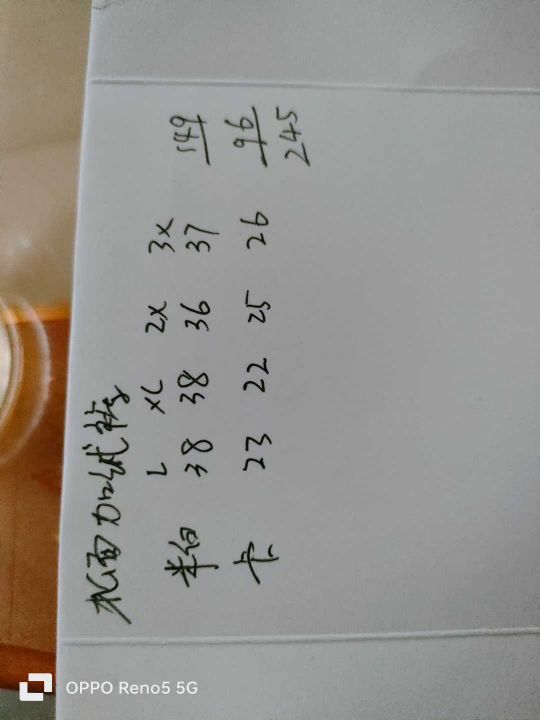 松面加绒裤
L XL 2X 3X
米白 38 38 36 37 149
卡 23 22 25 26 96
245
OPPO Reno5 5G